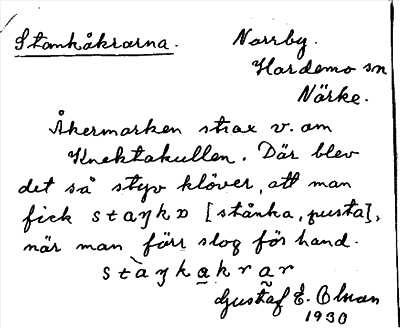 Stankåkrarna.
Norrby.
Hardemo sn
Närke.
Åkermarken strax v. om
Knektakullen. Där blev
det så styv klöver, att man
fick staŋka [stånka, pusta],
när man förr slog för hand.
stàŋkakrar
Gustaf E. Olsson
1930